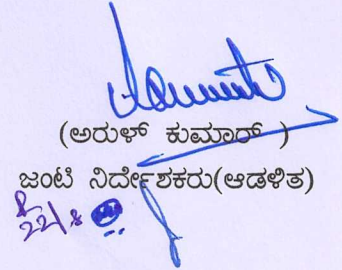 (ಅರುಳ್ ಕುಮಾರ್ )
ಜಂಟಿ ನಿರ್ದೇಶಕರು(ಆಡಳಿತ)
22/8